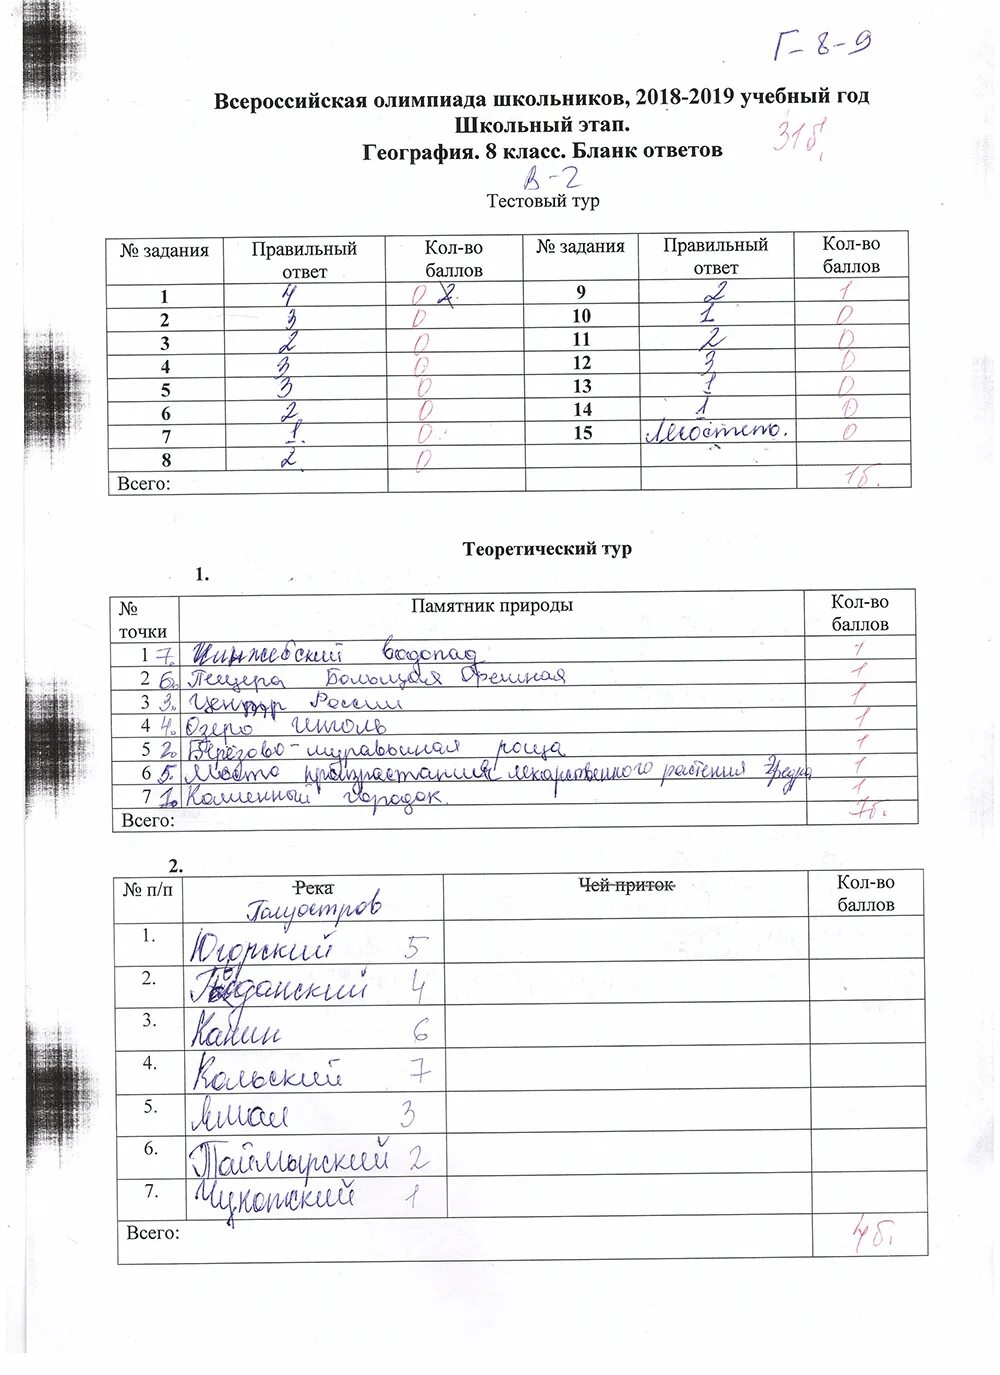 Г-8-9
Всероссийская олимпиада школьников, 2018-2019 учебный год
Школьный этап.
31б.
География. 8 класс. Бланк ответов
В-2
Тестовый тур
№ задания Правильный ответ Кол-во баллов № задания Правильный ответ Кол-во баллов
1 4 0 2. 9 2 1
2 3 0 10 1 0
3 2 0 11 2 0
4 3 0 12 3 0
5 3 0 13 1 0
6 2 0 14 1 0
7 1. 0 15 0
8 2. 0
Всего: 1б.
Теоретический тур
1.
№ точки Памятник природы Кол-во баллов
1 7. водопад 1
2 6. Пещера Большая Орешная 1
3 3. Центр России 1
4 4. Озеро Инголь 1
5 2. Берёзово-муравьиная роща 1
6 5. Место произрастания лекарственного растения Эфедра 1
7 1. Каменный городок. 1
Всего: 7б.
2.
№ п/п Река Чей приток Кол-во баллов
Полуостров
1. Югорский 5
2. 4
3. Канин 6
4. Кольский 7
5. Ямал 3
6. Таймырский 2
7. Чукотский 1
Всего: 4б.